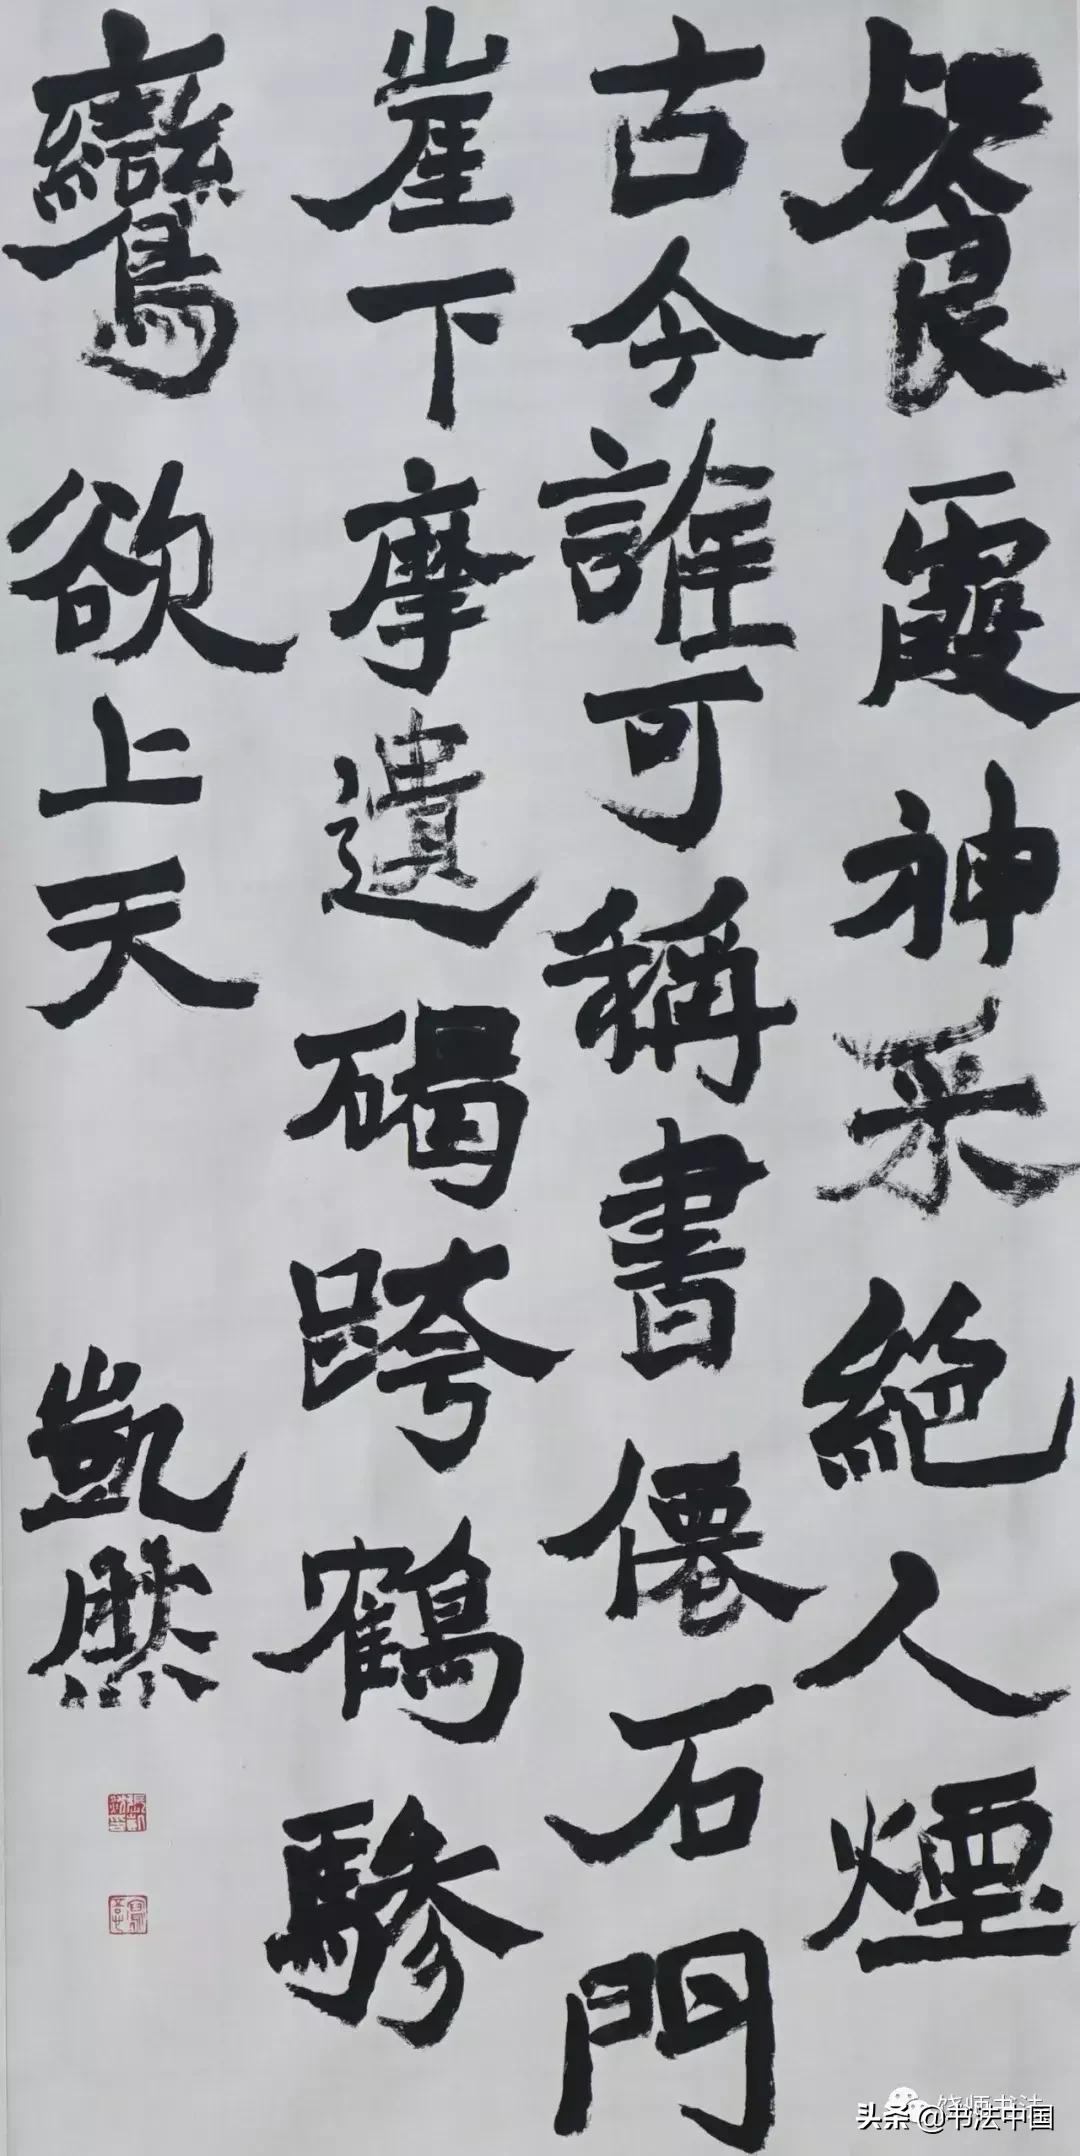 餐霞神采絕人煙
古今誰可稱書僊石門
崖下摩遺碣跨鶴驂
鸞欲上天
凱然
饶师书法
头条 @书法中国